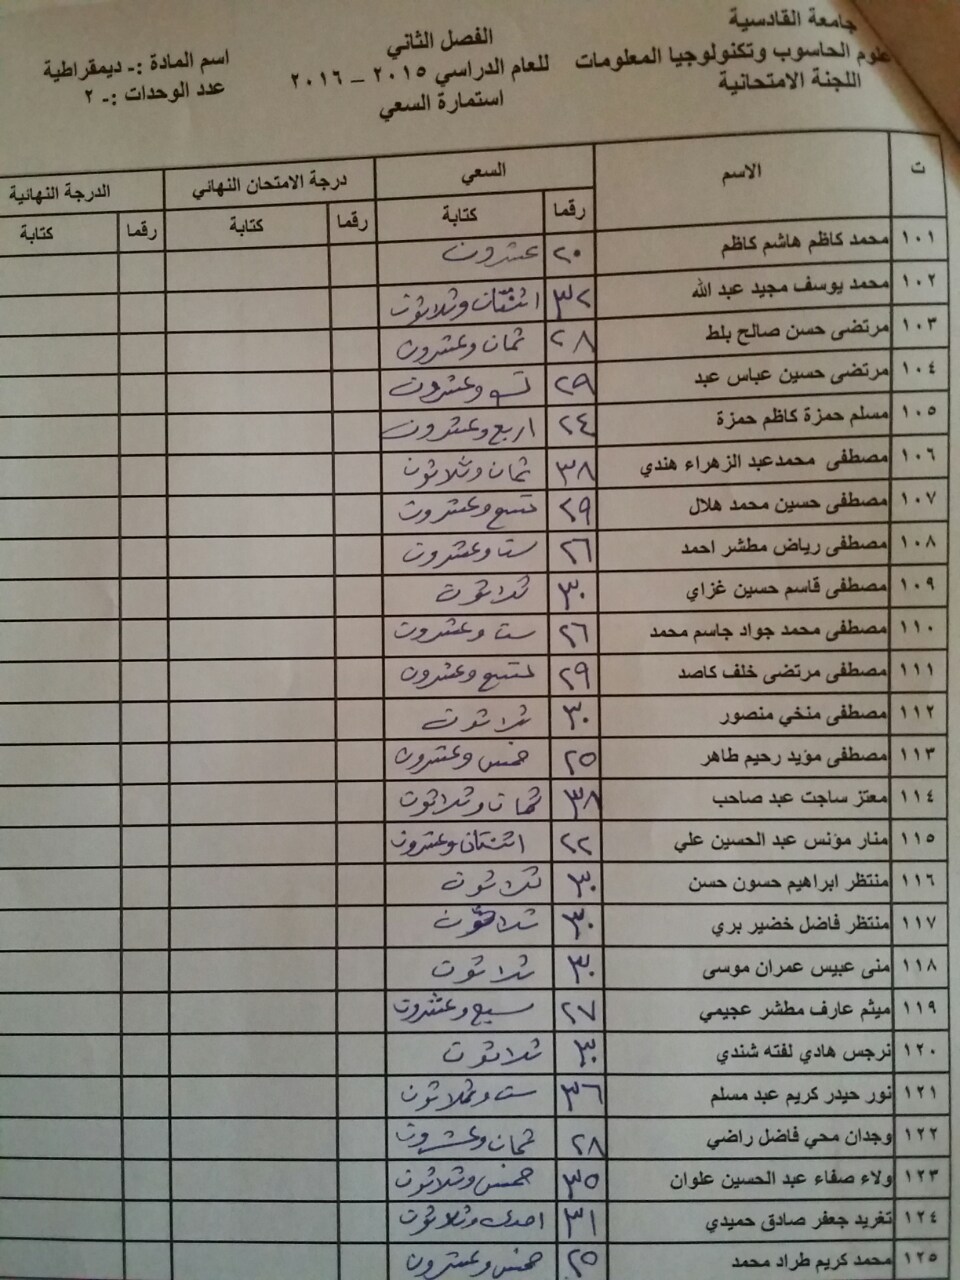 جامعة القادسية
علوم الحاسوب وتكنولوجيا المعلومات
اللجنة الامتحانية
الفصل الثاني
للعام الدراسي ٢٠١٥ – ٢٠١٦
استمارة السعي
اسم المادة :- ديمقراطية
عدد الوحدات :- ٢
ت الاسم السعي درجة الامتحان النهائي الدرجة النهائية
رقما كتابة رقما كتابة رقما كتابة
١٠١ محمد كاظم هاشم كاظم ٢٠ عشرون
١٠٢ محمد يوسف مجيد عبد الله ٣٢ اثنتان وثلاثون
١٠٣ مرتضى حسن صالح بلط ٢٨ ثمان وعشرون
١٠٤ مرتضى حسين عباس عبد ٢٩ تسع وعشرون
١٠٥ مسلم حمزة كاظم حمزة ٢٤ اربع وعشرون
١٠٦ مصطفى محمدعبد الزهراء هندي ٣٨ ثمان وثلاثون
١٠٧ مصطفى حسين محمد هلال ٢٩ تسع وعشرون
١٠٨ مصطفى رياض مطشر احمد ٢٦ ست وعشرون
١٠٩ مصطفى قاسم حسين غزاي ٣٠ ثلاثون
١١٠ مصطفى محمد جواد جاسم محمد ٢٦ ست وعشرون
١١١ مصطفى مرتضى خلف كاصد ٢٩ تسع وعشرون
١١٢ مصطفى منخي منصور ٣٠ ثلاثون
١١٣ مصطفى مؤيد رحيم طاهر ٢٥ خمس وعشرون
١١٤ معتز ساجت عبد صاحب ٣٨ ثمان وثلاثون
١١٥ منار مؤنس عبد الحسين علي ٢٢ اثنتان وعشرون
١١٦ منتظر ابراهيم حسون حسن ٣٠ ثلاثون
١١٧ منتظر فاضل خضير بري ٣٠ ثلاثون
١١٨ منى عبيس عمران موسى ٣٠ ثلاثون
١١٩ ميثم عارف مطشر عجيمي ٢٧ سبع وعشرون
١٢٠ نرجس هادي لفته شندي ٣٠ ثلاثون
١٢١ نور حيدر كريم عبد مسلم ٣٦ ست وثلاثون
١٢٢ وجدان محي فاضل راضي ٢٨ ثمان وعشرون
١٢٣ ولاء صفاء عبد الحسين علوان ٣٥ خمس وثلاثون
١٢٤ تغريد جعفر صادق حميدي ٣١ احدى وثلاثون
١٢٥ محمد كريم طراد محمد ٢٥ خمس وعشرون